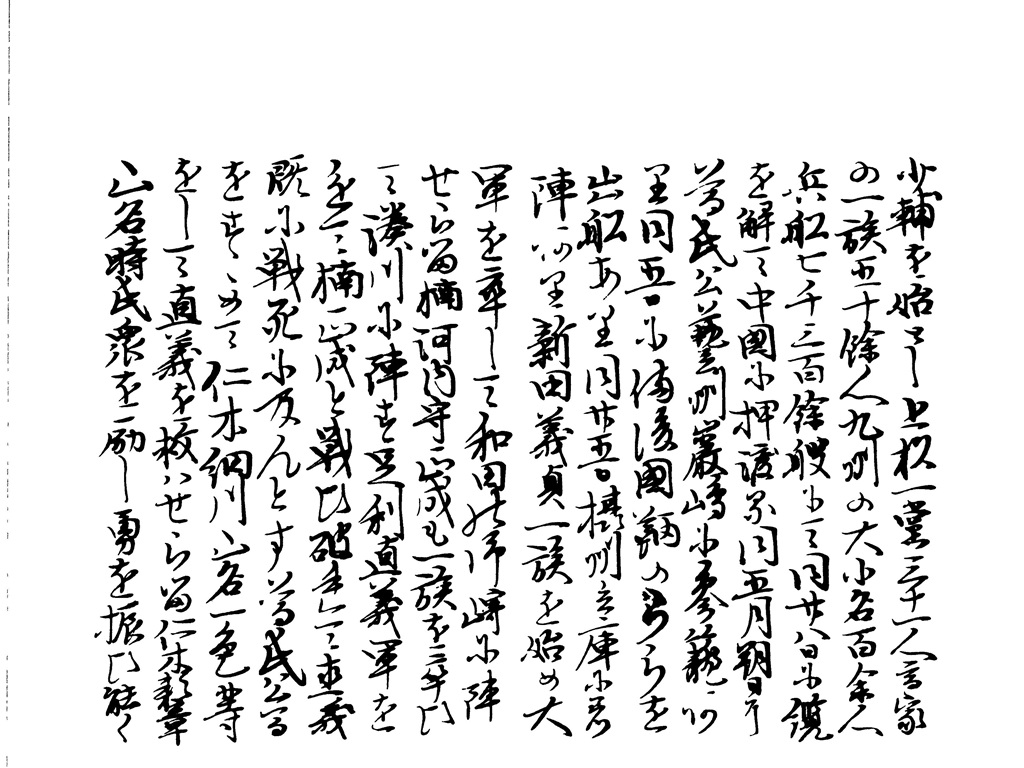 少輔を始とし上杦一党三十一人高家
の一族五十餘人九州の大小名百余人
兵船七千三百餘艘にて同廿八日に纜
を解て中國に押渡る同五月朔日に
尊氏公藝州嚴嶋に参籠
同五日に備後國鞆のうらを
出船あり同廿五日摂州兵庫に着
陣なり新田義貞一族を始め大
軍を率して和田の御崎に陣
せらる楠河内守正成も一族を率ひ
て湊川に陣す足利直義軍を
を以て楠正成と戦ひ破れて直義
既に戦死に及んとす尊氏公
をすゝめて仁木細川山名一色等
をして直義を救ハせらる仁木頼章
山名時氏衆を励し勇を振ひ能く